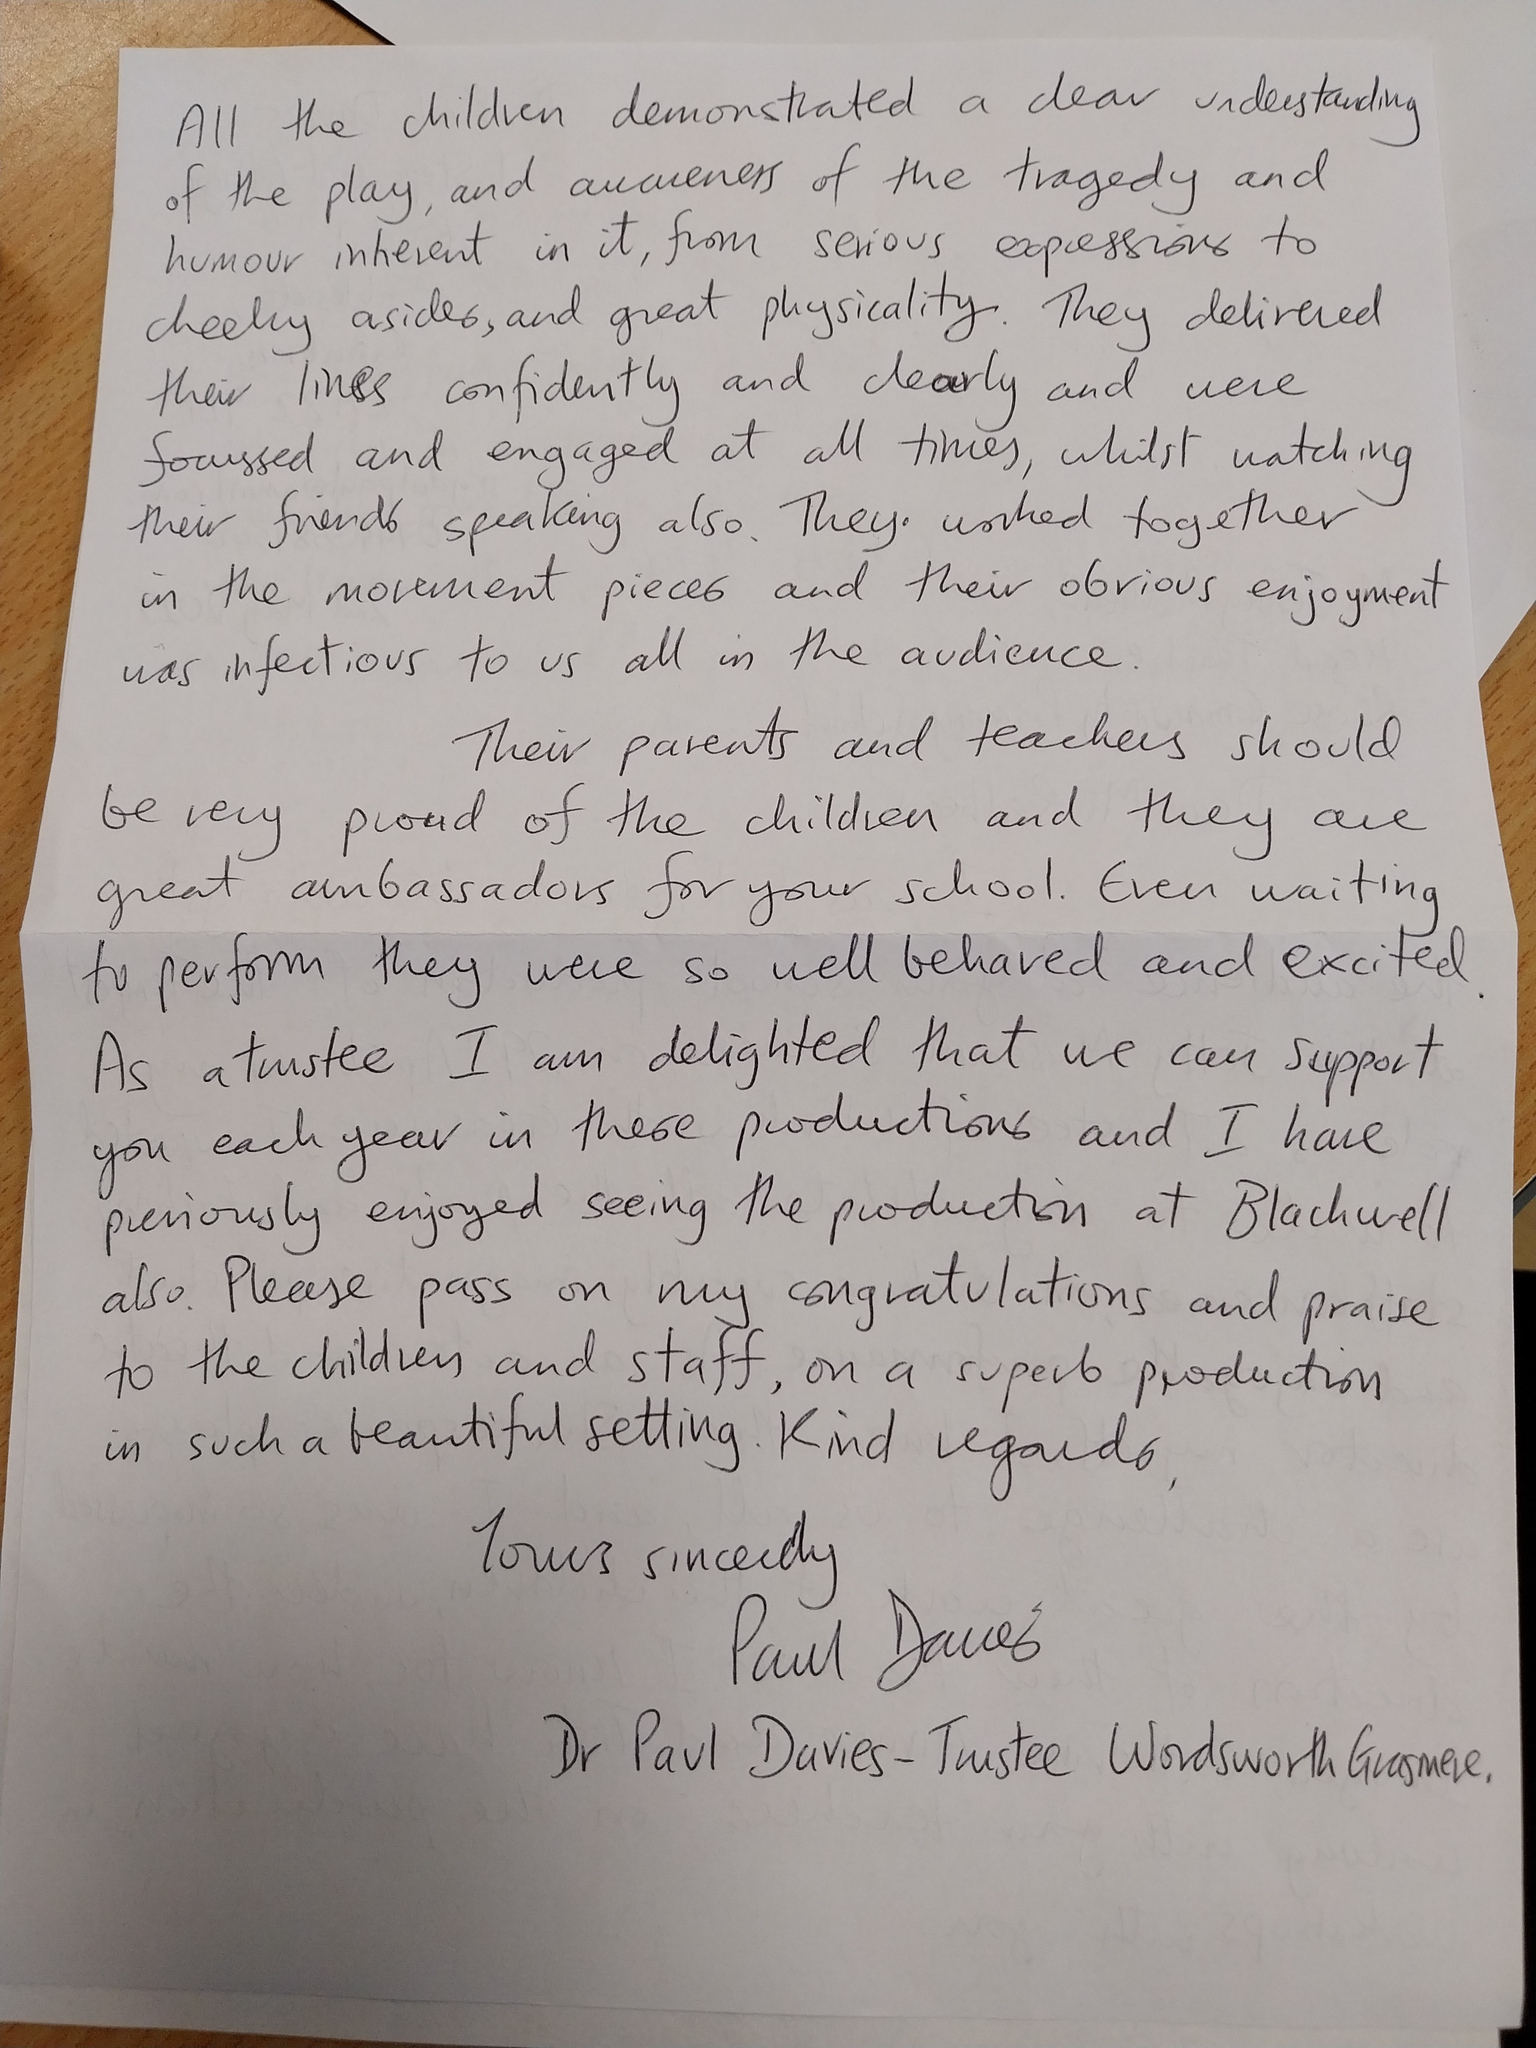 All the children demonstrated a clear understanding
of the play, and awareness of the tragedy and
humour inherent in it, from serious expressions to
cheeky asides, and great physicality. They delivered
their lines confidently and clearly and were
focussed and engaged at all times, whilst watching
their friends speaking also. They worked together
in the movement pieces and their obvious enjoyment
was infectious to us all in the audience.
Their parents and teachers should
be very proud of the children and they are
great ambassadors for your school. Even waiting
to perform they were so well behaved and excited.
As a trustee I am delighted that we can support
you each year in these productions and I have
previously enjoyed seeing the production at Blackwell
also. Please pass on my congratulations and praise
to the children and staff, on a superb production
in such a beautiful setting. Kind regards,
Yours sincerely
Paul Davies
Dr Paul Davies - Trustee Wordsworth Grasmere.